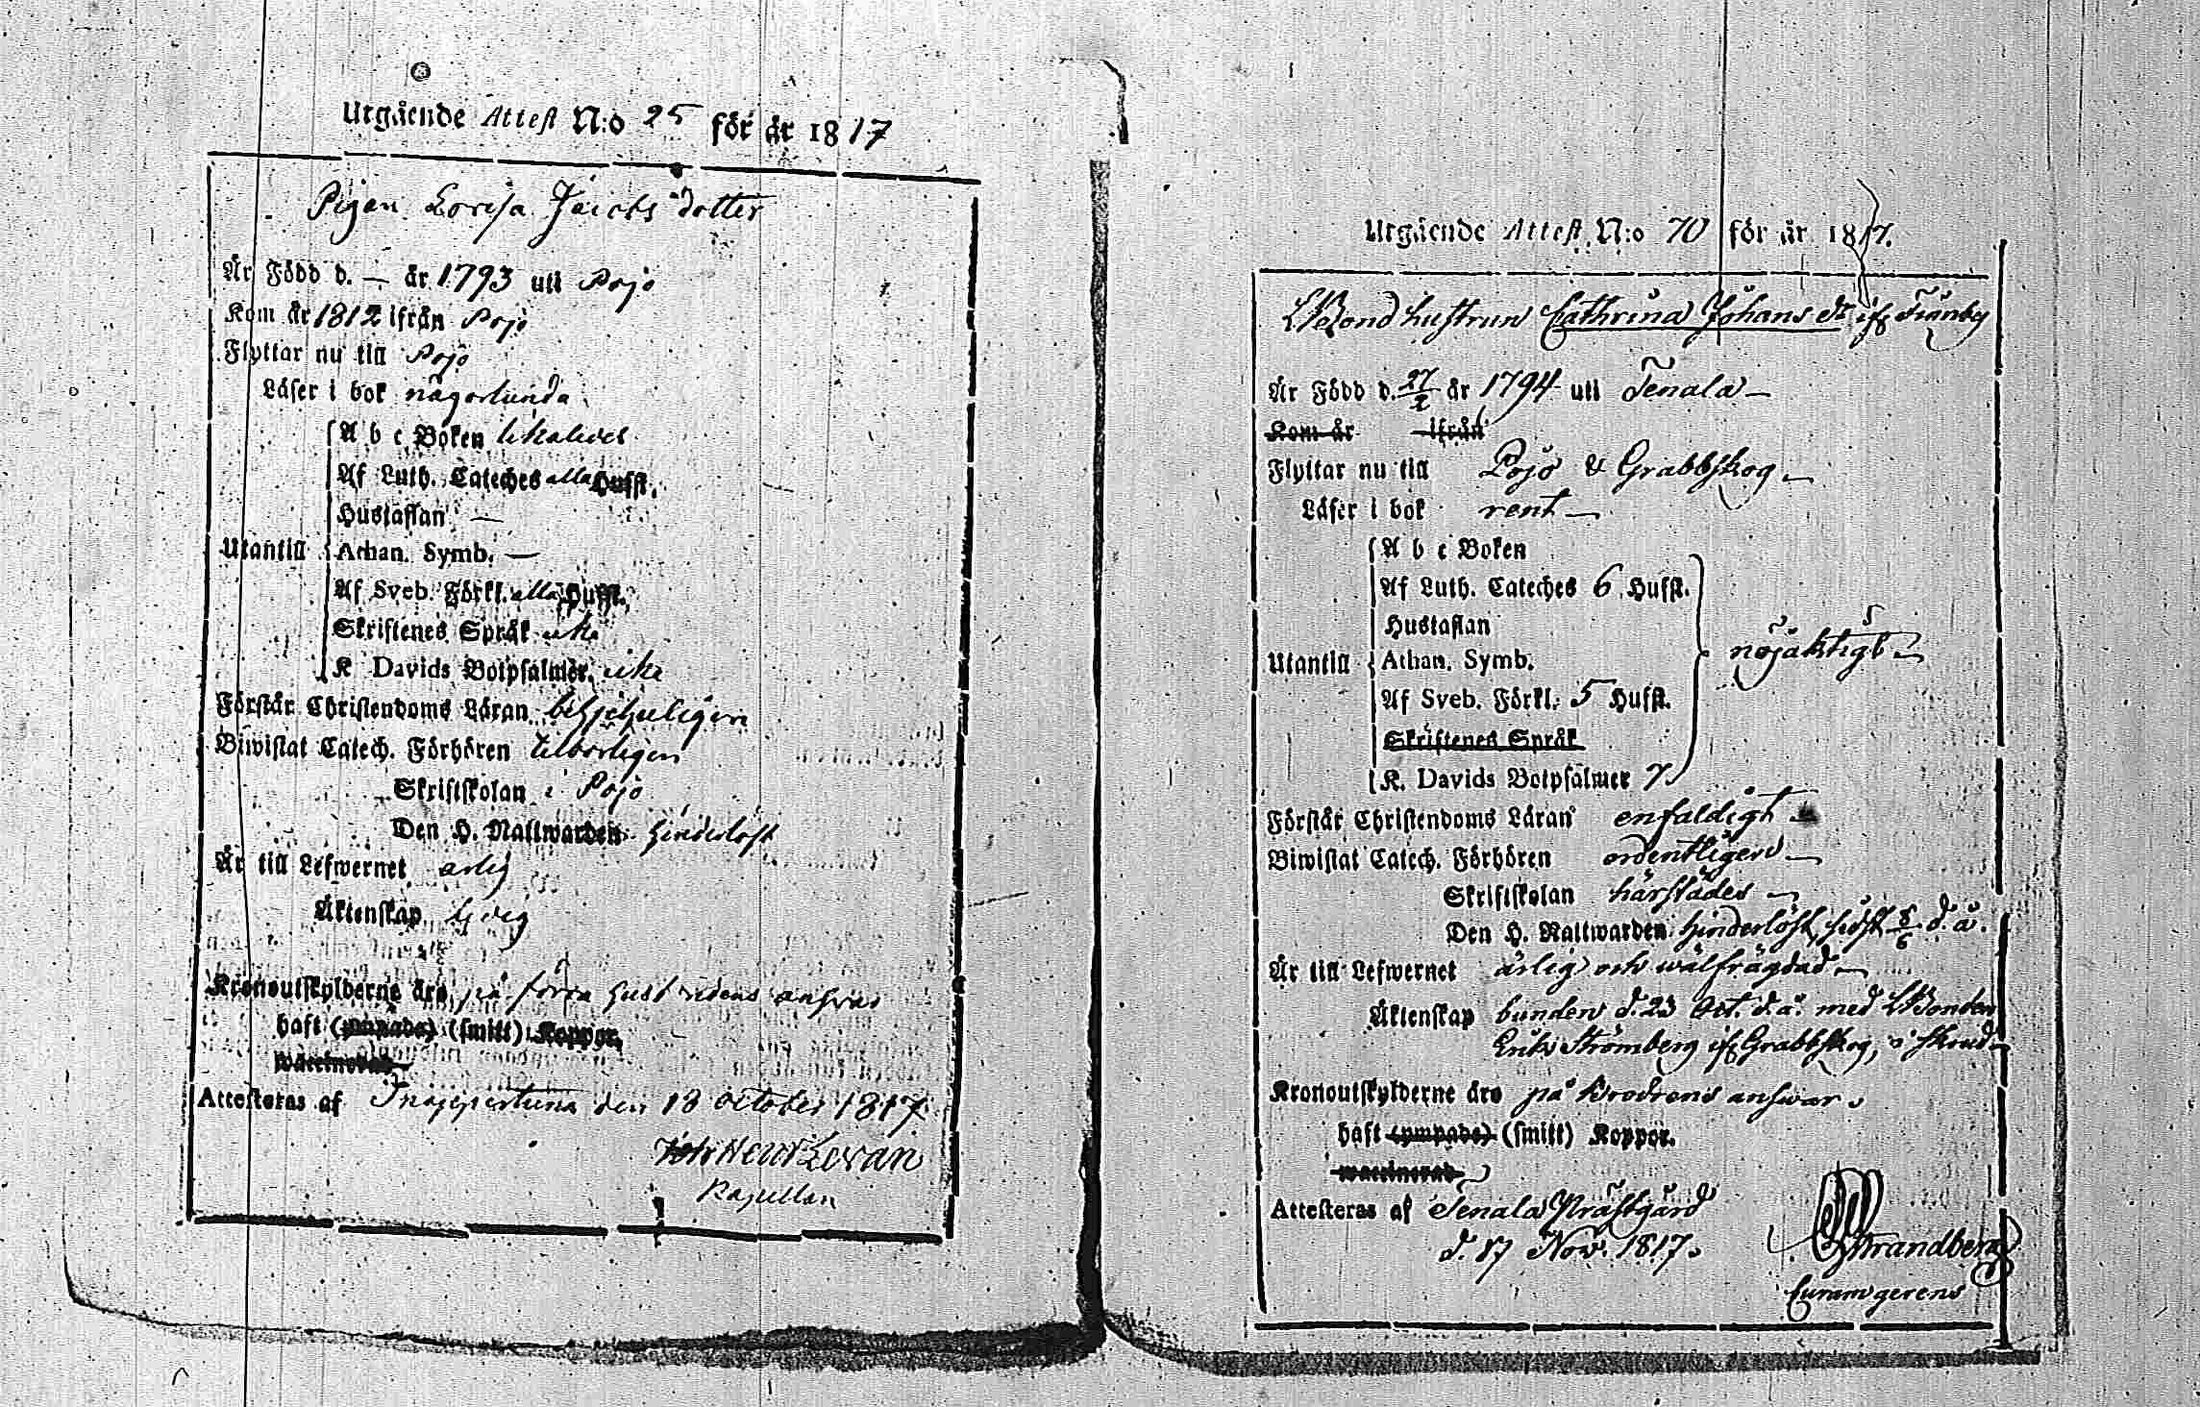 Utgående Attest N:o 25 för år 1817
Pigan Lovisa Jacobs dotter
Är Född d. — år 1793 uti Pojo
Kom år 1812 ifrån Pojo
Flyttar nu till Pojo
Läser i bok någorlunda
A b c Boken likaledes
Af Luth. Cateches alla Hufst.
Hustaflan —
Utantill Athan. Symb. —
Af Sveb. Förkl. alla Hufst.
Skriftenes Språk icke
K Davids Botpsalmer icke
Förstår Christendoms Läran
Biwistat Catech. Förhören tilbörligen
Skriftskolan i Pojo
Den H. Nattwarden hinderlöst
Är till Lefwernet ärlig
Äktenskap ledig
Kronoutskylderne äro på förra husbondens answar
haft (ympade) (smitt) Koppor.
waccinerad
Attesteras af den 18 October 1817
Joh Henr Levan
Kapellan
Utgående Attest N:o 70 för år 1817.
LBondhustrun Cathrina Johans dr if Tränby
Är Född d. 27/2 år 1794 uti Tenala —
Kom år ifrån
Flyttar nu till Pojo & Grabbskog —
Läser i bok rent —
A b c Boken
Af Luth. Cateches 6 Hufst.
Hustaflan
Utantill Athan. Symb. nöjaktigt —
Af Sveb. Förkl. 5 Hufst.
Skriftenes Språk
K. Davids Botpsalmer 7
Förstår Christendoms Läran enfaldigt —
Biwistat Catech. Förhören ordentligen —
Skriftskolan härstädes —
Den H. Nattwarden hinderlöst, sidst 8/6 d. å.
Är till Lefwernet ärlig och wälfrägdad —
Äktenskap bunden d. 23 Oct. d. å. med LBonden
Erik Strömberg if Grabbskog,
Kronoutskylderne äro på Brodrens answar.
haft (ympade) (smitt) Koppor.
waccinerad
Attesteras af Tenala Prästgård
d. 17 Nov. 1817.
Strandberg
Curam gerens